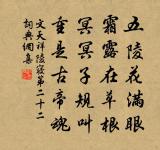 五陵花滿眼
霜露在草根
冥冥子規叫
重是古帝魂
文天祥陵寢第二十二
詞典網集